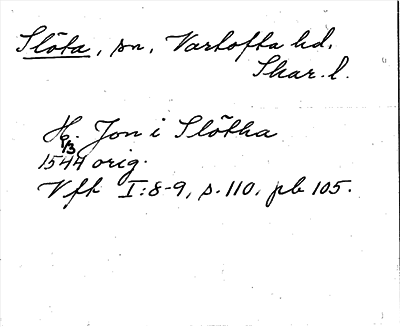 Slöta, sn, Vartofta hd.
Skar. l.
Hr. Jon i Slötha
1/3
1544 orig.
Vfh I:8-9, s. 110, pb 105.